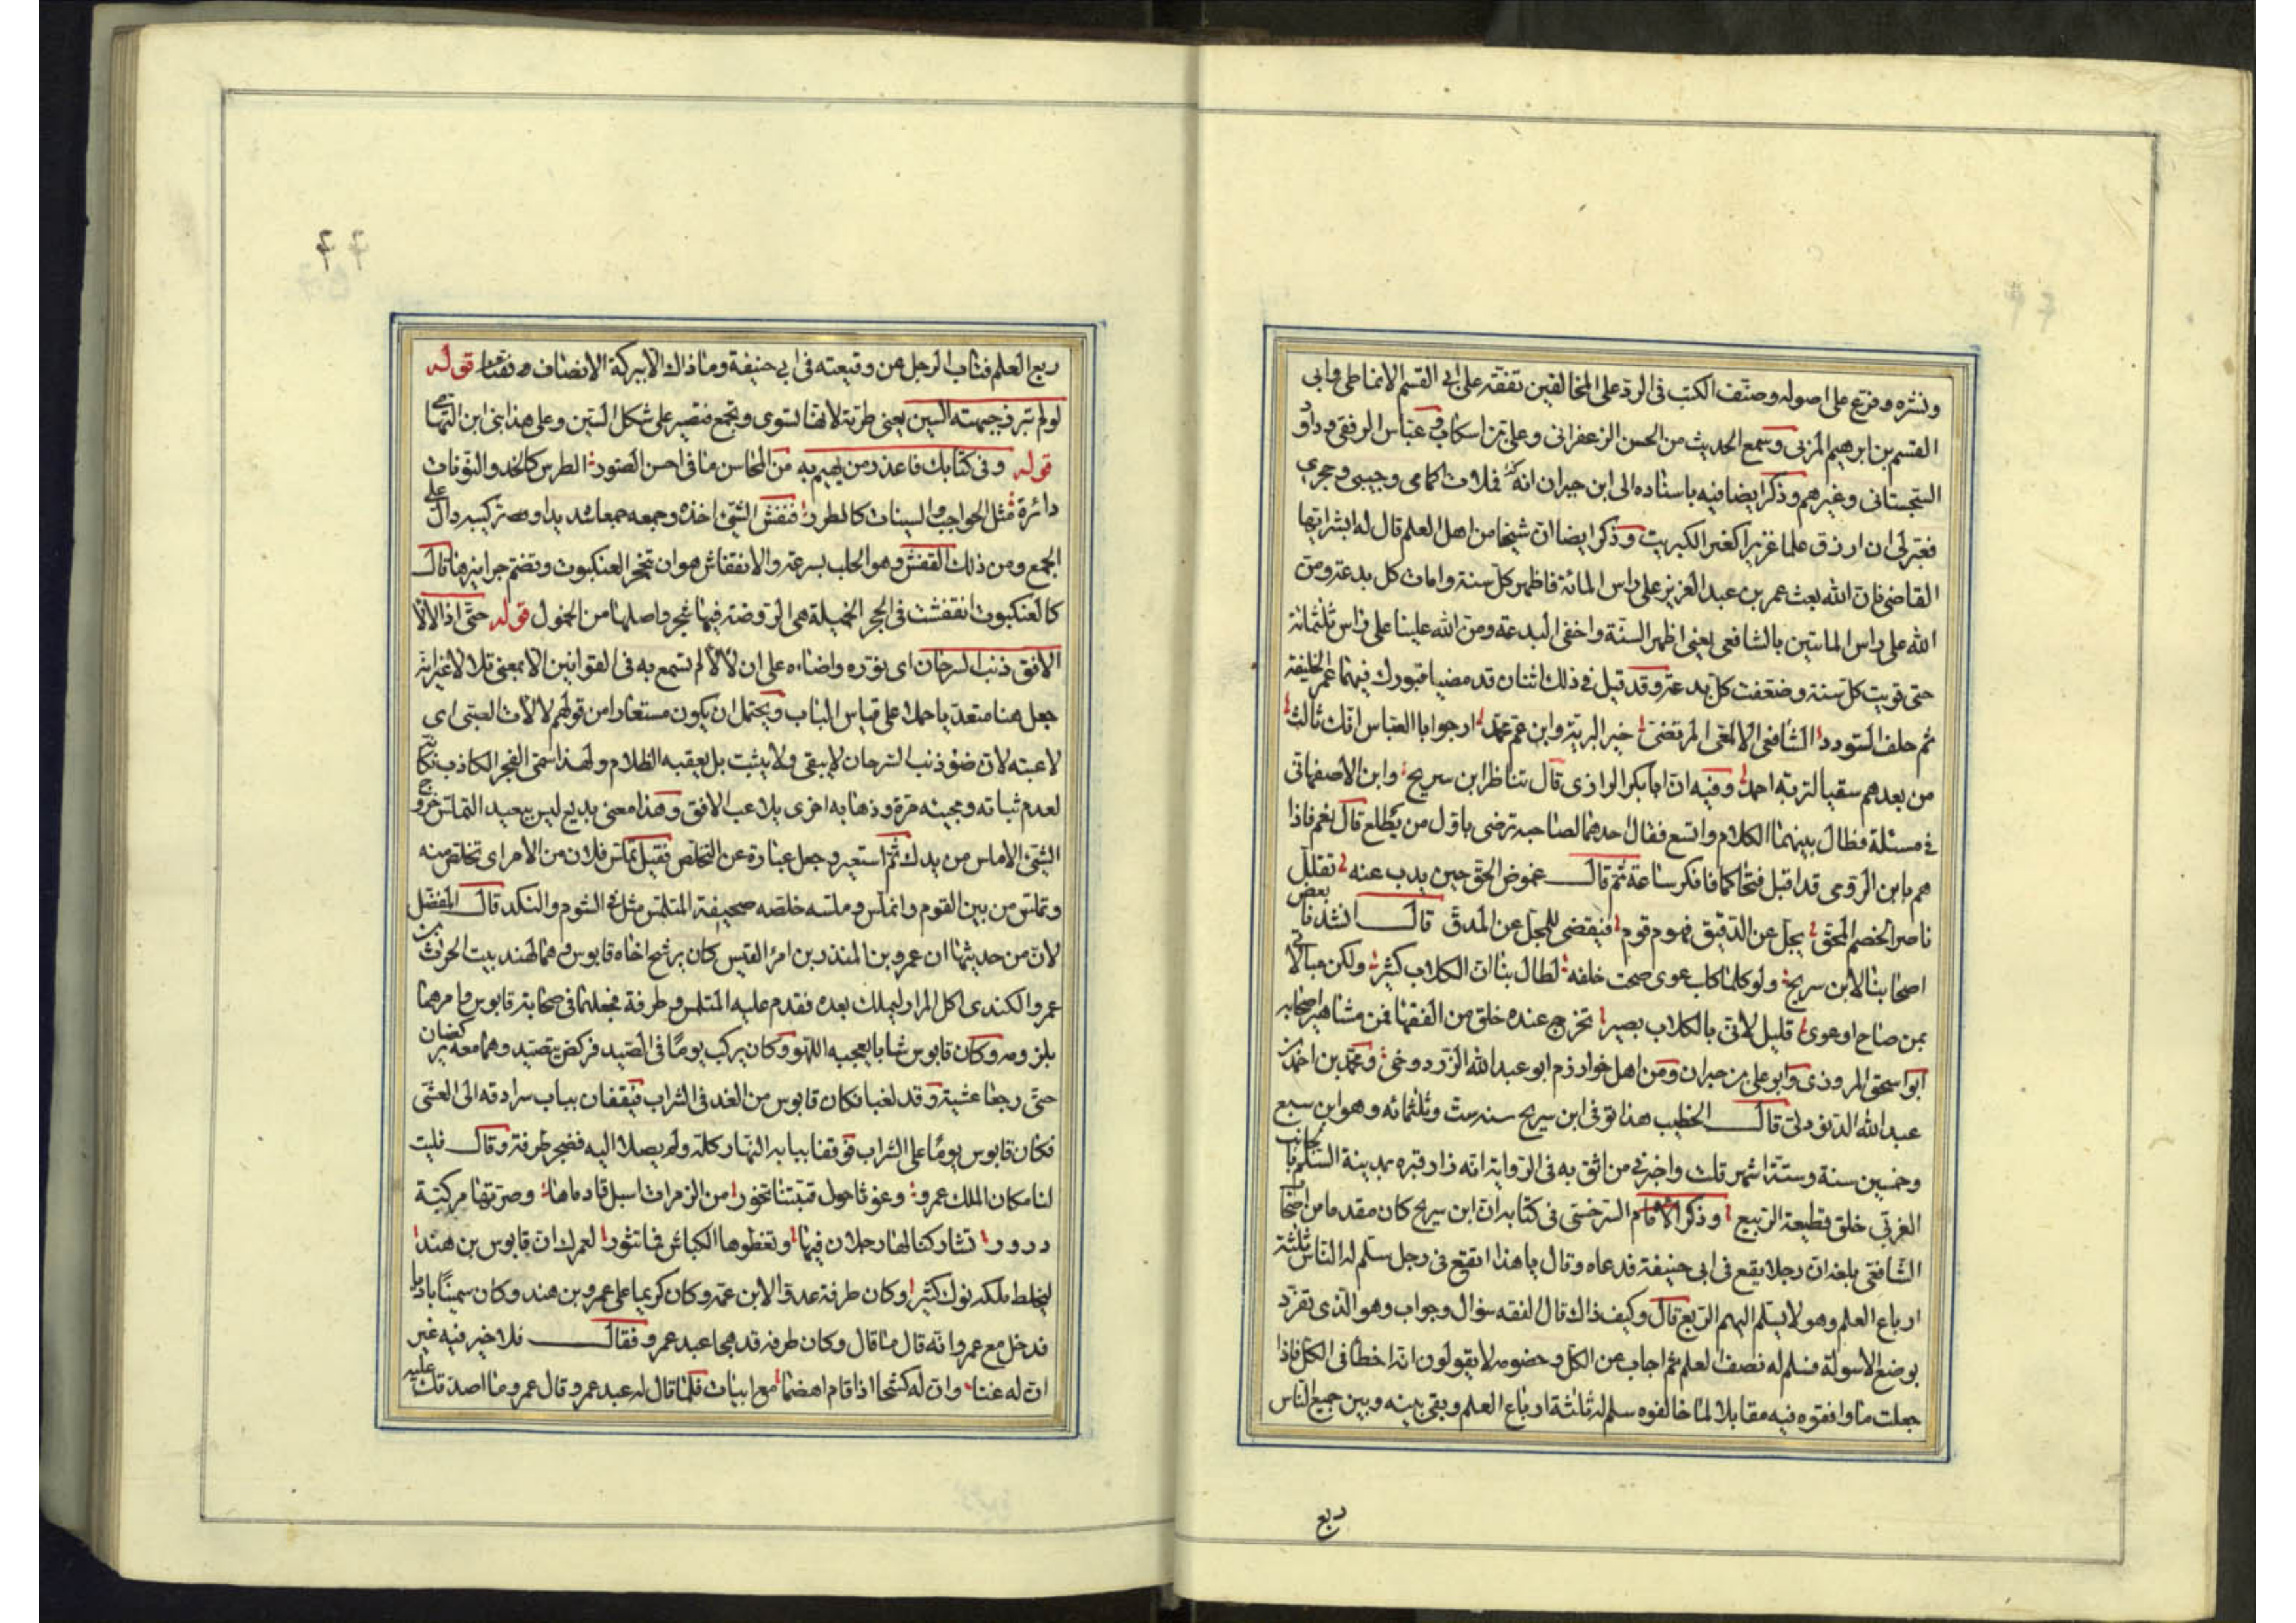 ونشره وفرع على اصوله وصنف الكتب فى الرد على المخالفين تفقه على ابى القسم الانماطى وابى
القسم بن ابرهيم المزنى وسمع الحديث من الحسن الزعفرانى وعلى بن اسكاب وعباس الرفقى وداود
السجستانى وغيرهم وذكر ايضا فيه باسناده الى ابن جيران انه فلات اكمامى وجيبى وحجرى
فعبر لى ان ارزق علما غزيرا كغبر الكبريت وذكر ايضا ان شيخا من اهل العلم قال له ابشر ايها
القاضى فان الله بعث عمر بن عبد العزيز على راس المائة فاظهر كل سنة وامات كل بدعة ومن
الله على راس الماتين بالشافعى يعنى اظهر السنة واخفى البدعة ومن الله علينا على راس ثلثمائة
حتى قويت كل سنة وضعفت كل بدعة وقد قيل فى ذلك اثنان قد مضيا فبورك فيهما عمر الخليفة
ثم حلف السودد الشافعى الالمعى المرتضى خير البرية وابن عم محمد ارجو ابا العباس انك ثالث
من بعدهم سقيا لتربة احمد وفيه ان ابا بكر الرازى قال تناظر ابن سريح وابن الاصفهانى
فى مسئلة فطال بينهما الكلام واتسع فقال احدهما لصاحبه ترضى باول من يطلع قال نعم فاذا
هم بابن الرومى قد اقبل فتحاكما فافكر ساعة ثم قال غموض الحق حين يدب عنه تقلل
ناصر الخصم المحق يجل عن الدقيق فهوم قوم فيقضى للمجل عن المدق قال انشدنا بعض
اصحابنا لابن سريح ولو كلما كلب عوى صحت خلفه لطال بنا ان الكلاب كثير ولكن مبالاتى
بمن صاح او عوى قليل لانى بالكلاب بصير تخرج عنده خلق من الفقها فمن مشاهير اصحابه
ابو اسحق المروزى وابو على بن جيران ومن اهل خوارزم ابو عبد الله الزردوخى ومحمد بن احمد بن
عبد الله قال الخطيب هذا توفى ابن سريح سنه ست وثلثمائه وهو ابن سبع
وخمسين سنة وستة اشهر قلت واخبرنى من اثق به فى الرواية انه زار قبره بمدينة السلم بالجانب
الغربى خلق قطيعة الربيع وذكر الامام السرخسى فى كتابه ان ابن سريح كان مقدما من اصحاب
الشافعى بلغه ان رجلا يقع فى ابى حنيفة فدعاه وقال يا هذا اتقع فى رجل سلم له الناس ثلثة
ارباع العلم وهو لا يسلم اليهم الربع قال وكيف ذاك قال الفقه سؤال وجواب وهو الذى تفرد
بوضع الاسولة فسلم له نصف العلم ثم اجاب عن الكل وخصومه لا يقولون انه اخطأ فى الكل فاذا
جعلت ما وافقوه فيه مقابلا لما خالفوه سلم له ثلاثة ارباع العلم وبقى بينه وبين جميع الناس
ربع
ربع العلم فتاب الرجل عن وقيعته فى ابى حنيفة وما ذاك الا ببركة الانصاف قوله
لو لم تبر فى جبهته السين يعنى طرته لانها تسوى وتجمع فتصير على شكل السين وعلى هذا بنى ابن التهامى
قوله وفى كتابك فاعذر من يهيم به من المحاسن ما فى احسن الصور الطرس كالخد والنونات
دائرة مثل الحواجب والسينات كالطرر قنفش الشئ اخذه وجمعه جمعا شديدا وتركيبه دال على
الجمع ومن ذلك القفش وهو الحلب بسرعة والانقفاش هو ان تنحجر العنكبوت وتضم جراميزها قال
كالعنكبوت انقفشت فى الجحر الخميلة هى الروضة فيها شجر واصلها من الخمول قوله حتى اذا لالا
الافق ذنب السرحان اى نوره واضاءه على ان لالا لم تسمع به فى القوانين الا بمعنى تلالا غير انه
جعل هنا متعديا حملا على قياس الباب ويحتمل ان يكون مستعارا من قولهم لالات الصبى اى
لاعبته لان ضوء ذنب السرحان لا يبقى ولا يثبت بل يعقبه الظلام ولهذا سمى الفجر الكاذب فكانه
لعدم ثباته ومجيئه مرة وذهابه اخرى يلاعب الافق وهذا معنى بديع ليس ببعيد التملس خروج
الشئ الاملس من يدك ثم استعير وجعل عبارة عن التخلص فقيل تملس فلان من الامر اى تخلص منه
وتملس من بين القوم وانملس وملسه خلصه صحيفة المتلمس مثل فى الشوم والنكد قال المفضل
لان من حديثها ان عمرو بن المنذر بن امرء القيس كان يرشح اخاه قابوس وهما لهند بنت الحرث بن
عمرو الكندى اكل المرار ليملك بعده فقدم عليه المتلمس وطرفة فجعلهما فى صحابة قابوس وامرهما
بلزومه وكان قابوس شابا يعجبه اللهو وكان يركب يوما فى الصيد فركض يتصيد وهما معه يركضان
حتى رجعا عشية وقد لغبا فكان قابوس من الغد فى الشراب فيقفان بباب سرادقه الى العشى
فكان قابوس يوما على الشراب فوقفا ببابه النهار كله ولم يصلا اليه فضجر طرفة وقال فليت
لنا مكان الملك عمرو رغوثا حول قبتنا تخور من الزمرات اسبل قادماها وضرتها مركنة
درور تشاركنا لها رجلان فيها وتعطوها الكباش فما تنور لعمرك ان قابوس بن هند
ليخلط ملكه نوك كثير وكان طرفة عدوا لابن عمه وكان كريما على عمرو بن هند وكان سمينا بادنا
فدخل مع عمرو انه قال ما قال وكان طرفه قد هجا عبد عمرو فقال فلا خير فيه غير
ان له غنا وان له كشحا اذا قام اهضما مع ابيات فلما قال له عبد عمرو قال عمرو ما اصدقك عليه